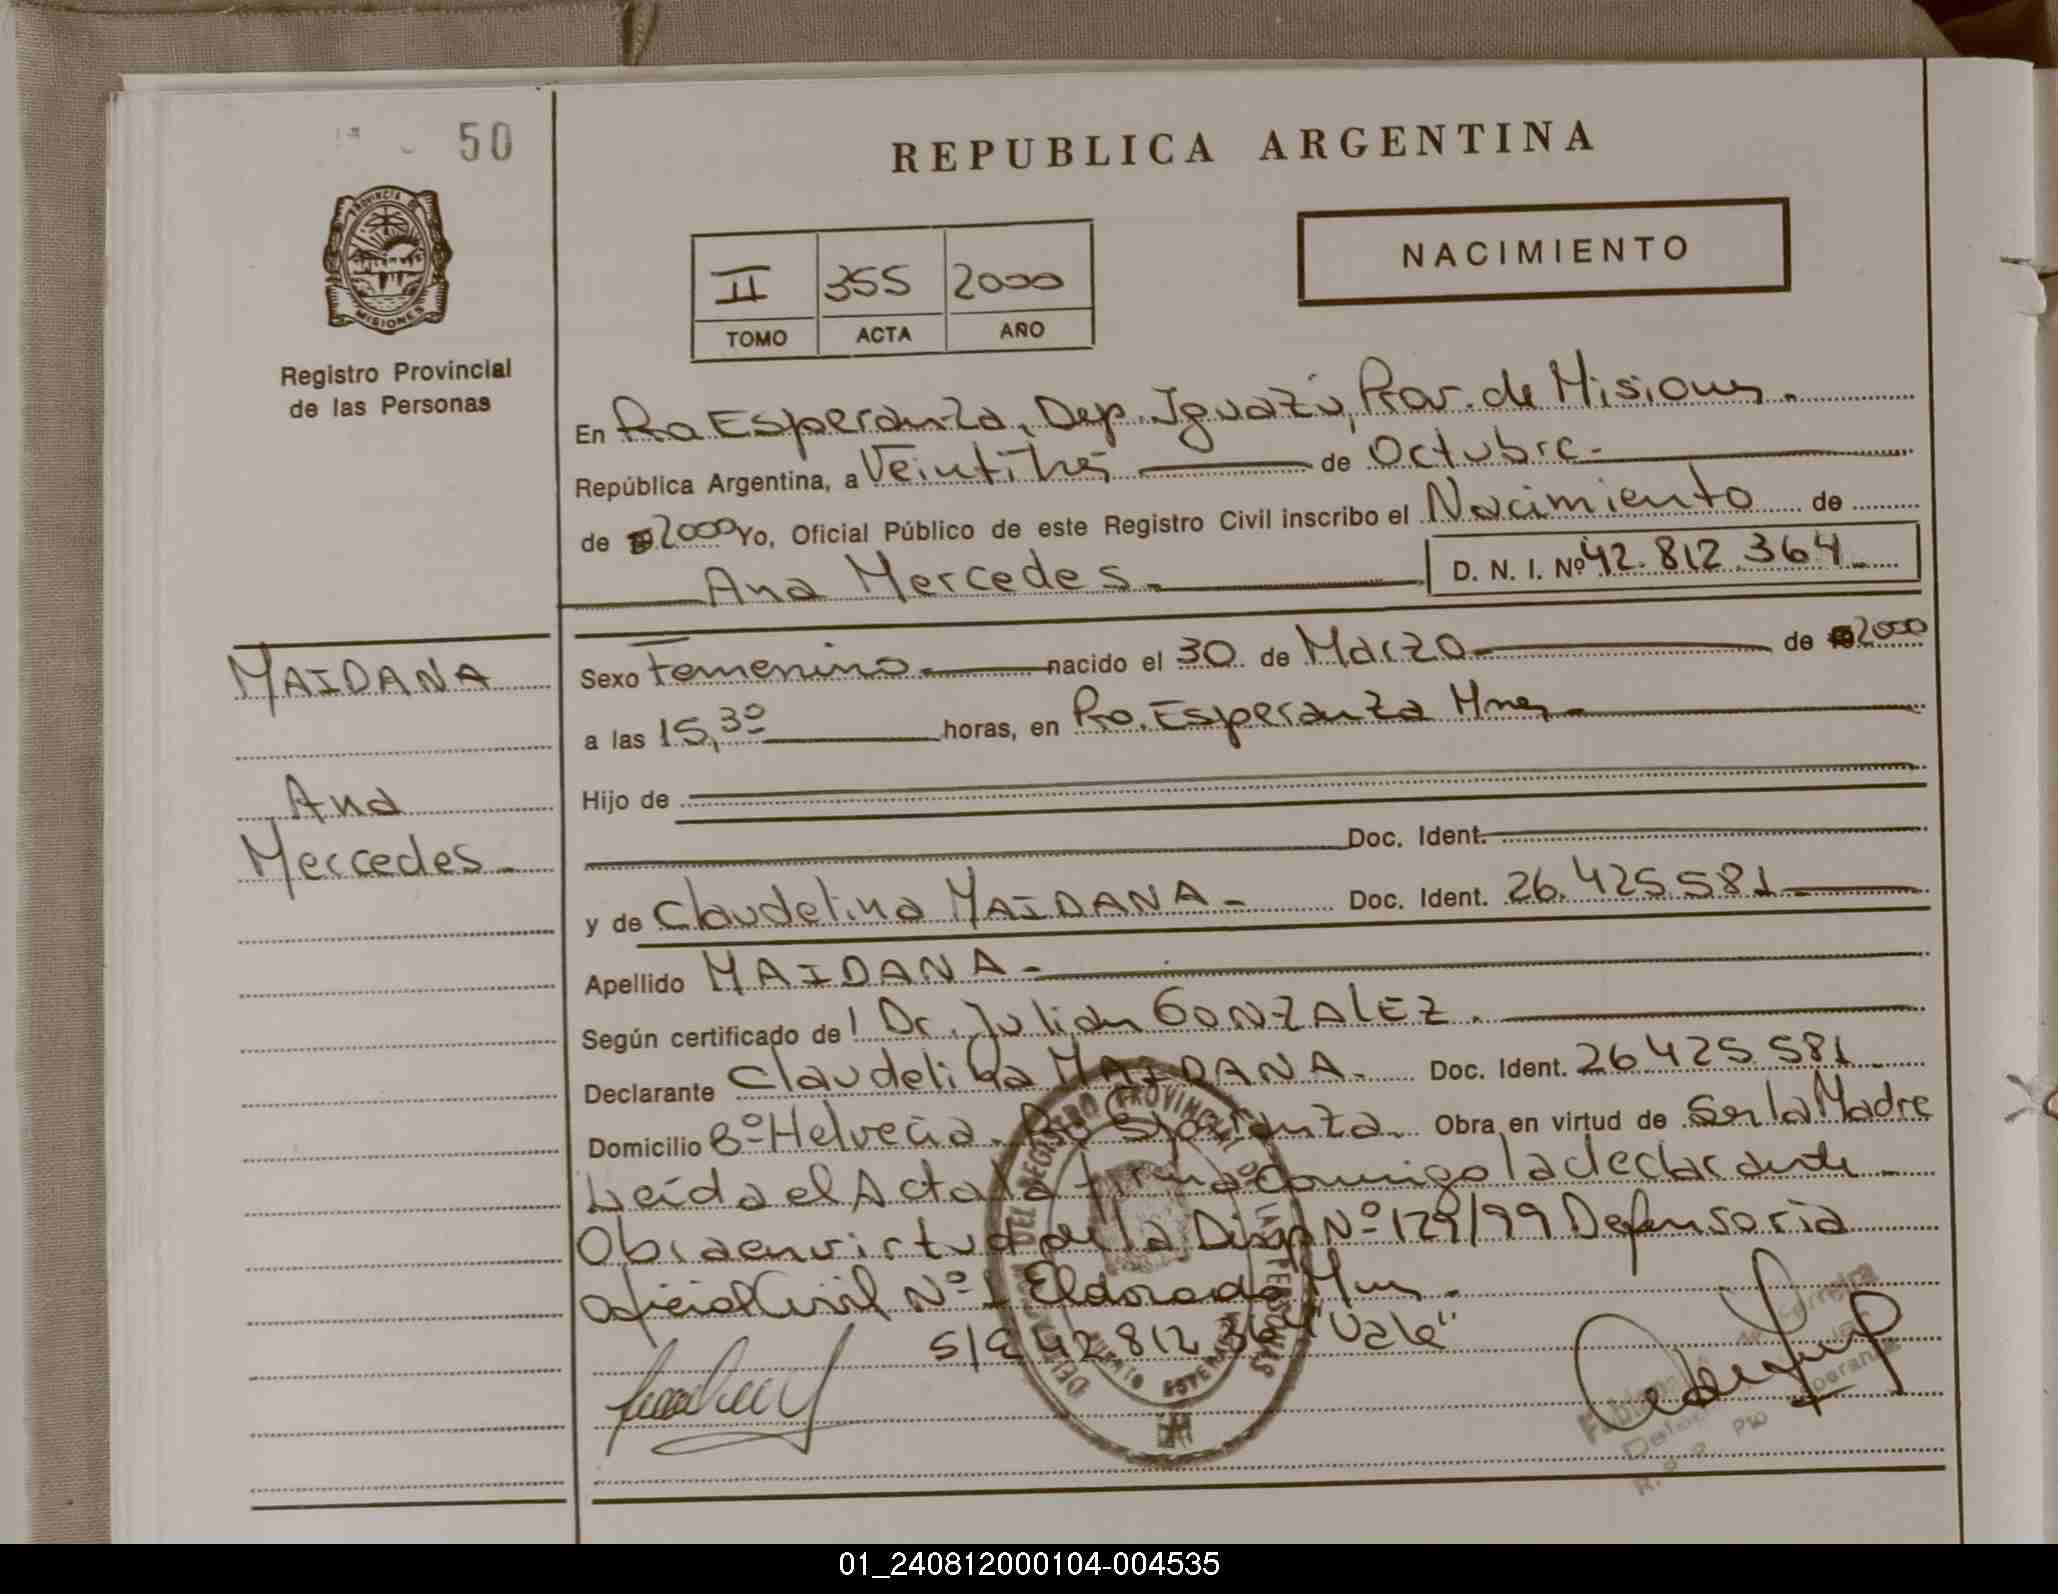 50
REPUBLICA ARGENTINA
PROVINCIA DE
MISIONES
Registro Provincial
de las Personas
NACIMIENTO
II 355 2000
TOMO ACTA AÑO
En Pto Esperanza, Dep. Iguazú, Prov. de Misiones.
República Argentina, a Veintitrés de Octubre.-
de 2000 Yo, Oficial Público de este Registro Civil inscribo el Nacimiento de
Ana Mercedes.- D. N. I. Nº 42.812.364
MAIDANA
Ana
Mercedes.-
Sexo Femenino.- nacido el 30 de Marzo de 2000
a las 15,30 horas, en Pto. Esperanza Mnes.-
Hijo de
Doc. Ident.
y de Claudelina MAIDANA.- Doc. Ident. 26.425.581
Apellido MAIDANA.-
Según certificado de l Dr. Julian GONZALEZ.
Declarante Claudelina MAIDANA.- Doc. Ident. 26.425.581
Domicilio Bº Helvecia. Pto Esperanza. Obra en virtud de Ser la Madre
Leída el Acta la firma conmigo la declarante
Obra en virtud de la Disp Nº 129/99 Defensoria
Oficial Civil Nº 1 Eldorado Mnes.
S/E 42 812 364 "Vale"
DEL REGISTRO PROVINCIAL DE LAS PERSONAS
PUERTO ESPERANZA
01_240812000104-004535